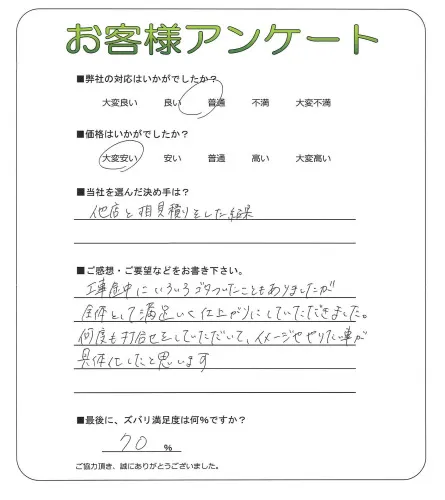 お客様アンケート
■弊社の対応はいかがでしたか?
大変良い 良い 普通 不満 大変不満
■価格はいかがでしたか?
大変安い 安い 普通 高い 大変高い
■当社を選んだ決め手は?
他店と相見積りをした結果
■ご感想・ご要望などをお書き下さい。
工事途中にいろいろゴタついたこともありましたが
全体として満足いく仕上がりにしていただきました。
何度も打合せをしていただいて、イメージややりたい事が
具体化したと思います
■最後に、ズバリ満足度は何%ですか?
70 %
ご協力頂き、誠にありがとうございました。